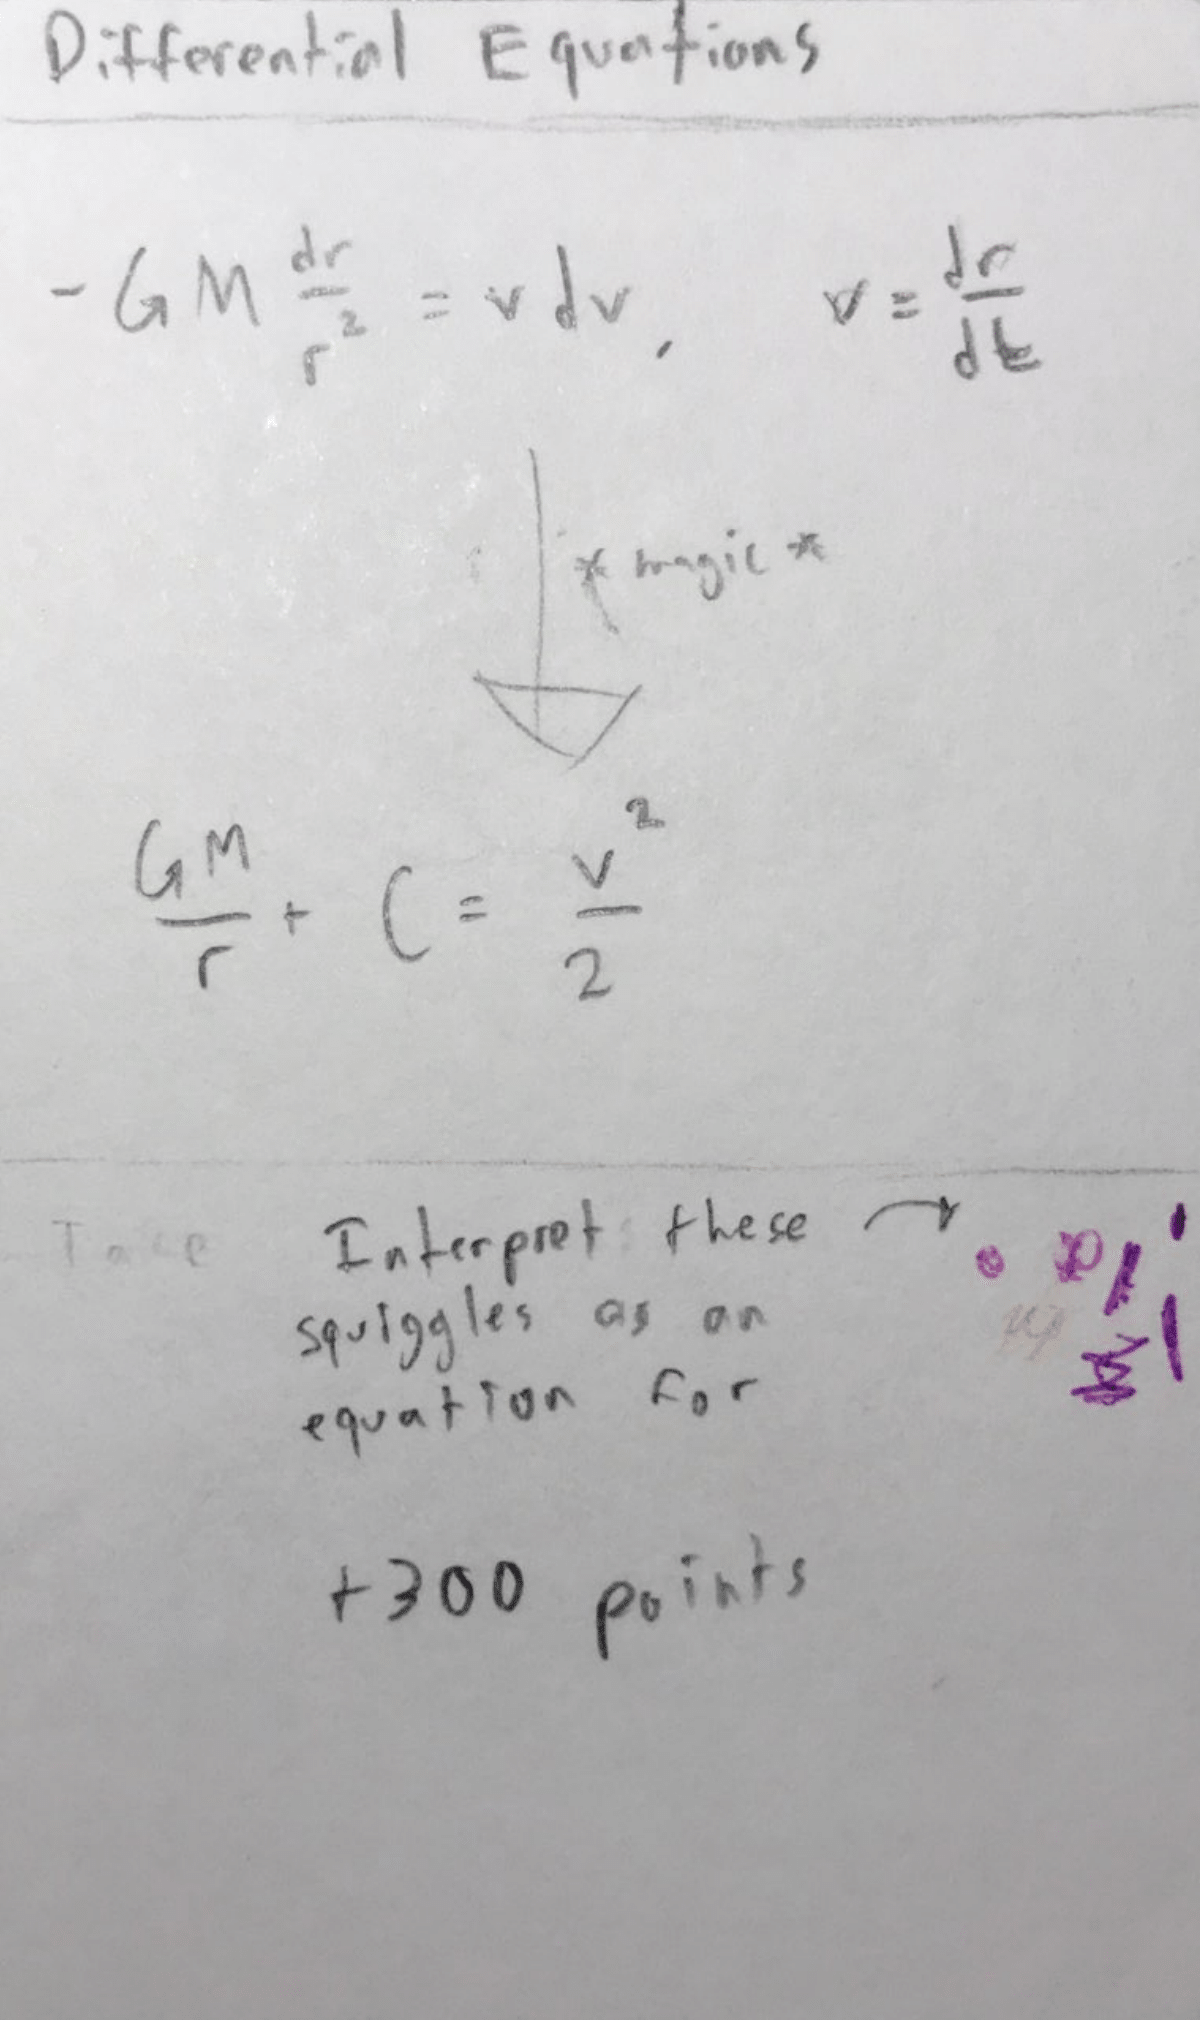 Differential Equations
-GM dr/r² = v dv, v = dr/dt
*magic*
GM/r + C = v²/2
Interpret these
squiggles as an
equation for
+300 points